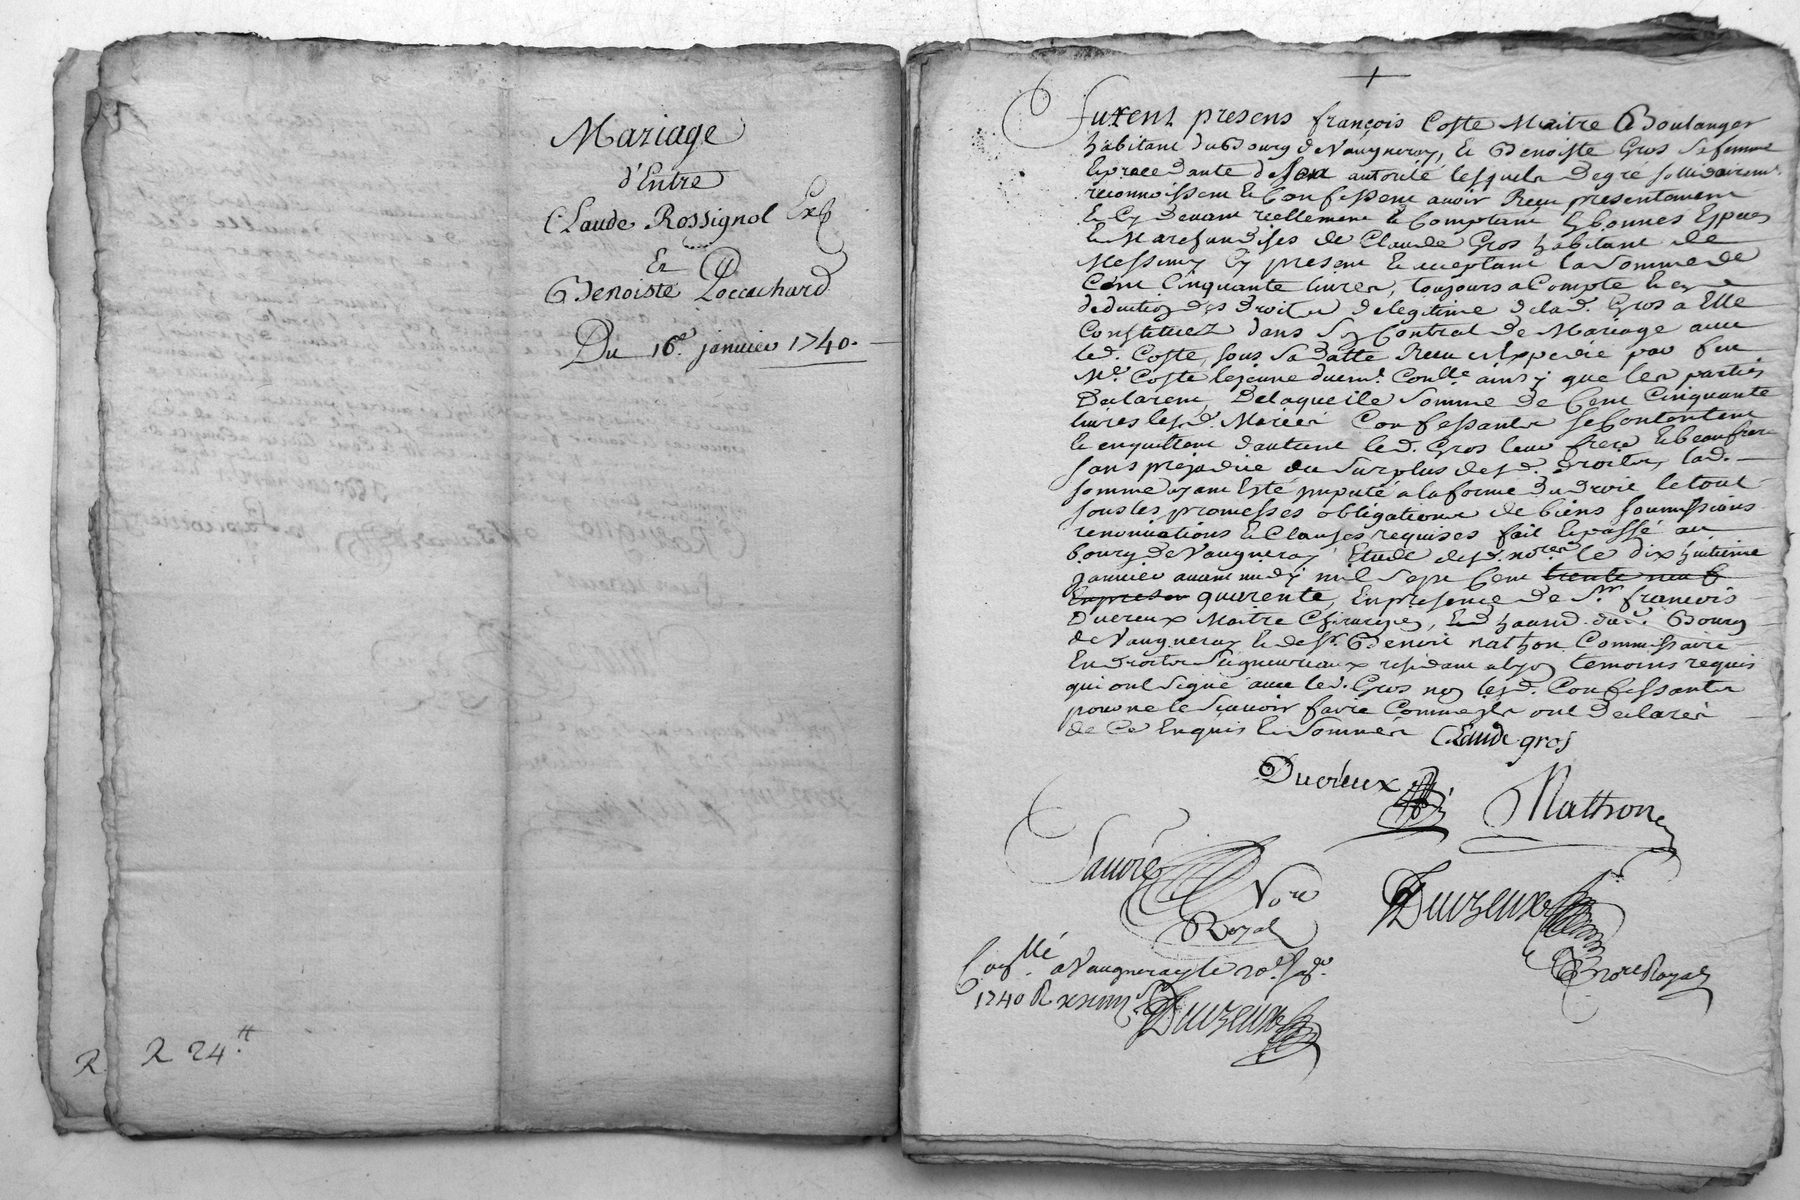 Mariage
d'Entre
Claude Rossignol Exp
Et
Benoiste Poccachard
Du 16e janvier 1740.
R
R 24 tt
+
Furent presens françois Coste Maitre Boulanger
habitant du Bourg de Vaugneray, et Benoiste Gros sa femme
autorité lesquels de gré solidairemt
reconnoissent et Confessent avoir Reçu presentement
et Cy devant réellement et Comptant En bonnes Especes
et Marchandises de Claude Gros habitant de
Messimy Cy present et acceptant la somme de
Cent Cinquante livres, toujours a Compte et en
deduction des droits de légitime de lad. Gros a Elle
Constituez dans son Contrat de Mariage avec
led. Coste, sous sa datte Reçu et Expedié par feu
Me Coste lejeune duemt. Conllé ainsy que les parties
Declarent, De laquelle somme de Cent Cinquante
livres lesd. Mariés Confessants se Contentent
et en quittent d'autant led. Gros leur frere et beaufrere
sans préjudice du surplus desd. droits, lad.
somme ayant Esté imputé a la forme du droit le tout
sous les promesses obligations de biens soumissions
renonciations et Clauses requises fait et passé au
bourg de Vaugneray Etude desd. nores le dix huitieme
janvier avant midy mil sept Cent trente neuf
En presen quarente, En presence de Sr. françois
Duvreux Maitre Chirurgien, dud. Bourg
de Vaugneray et de Sr. Benoit Mathon Commissaire
En droits Seigneuriaux residant a lyon temoins requis
qui ont signé avec led. Gros non lesd. Confessants
pour ne le sçavoir faire Comme ils ont declarés
de Ce Enquis et Sommés Claude gros
Duvreux Mathon
Nore
Royal
Duvzeux
nore Royal
Conllé a Vaugneray le 20e. janr.
1740 R
Duvzeux